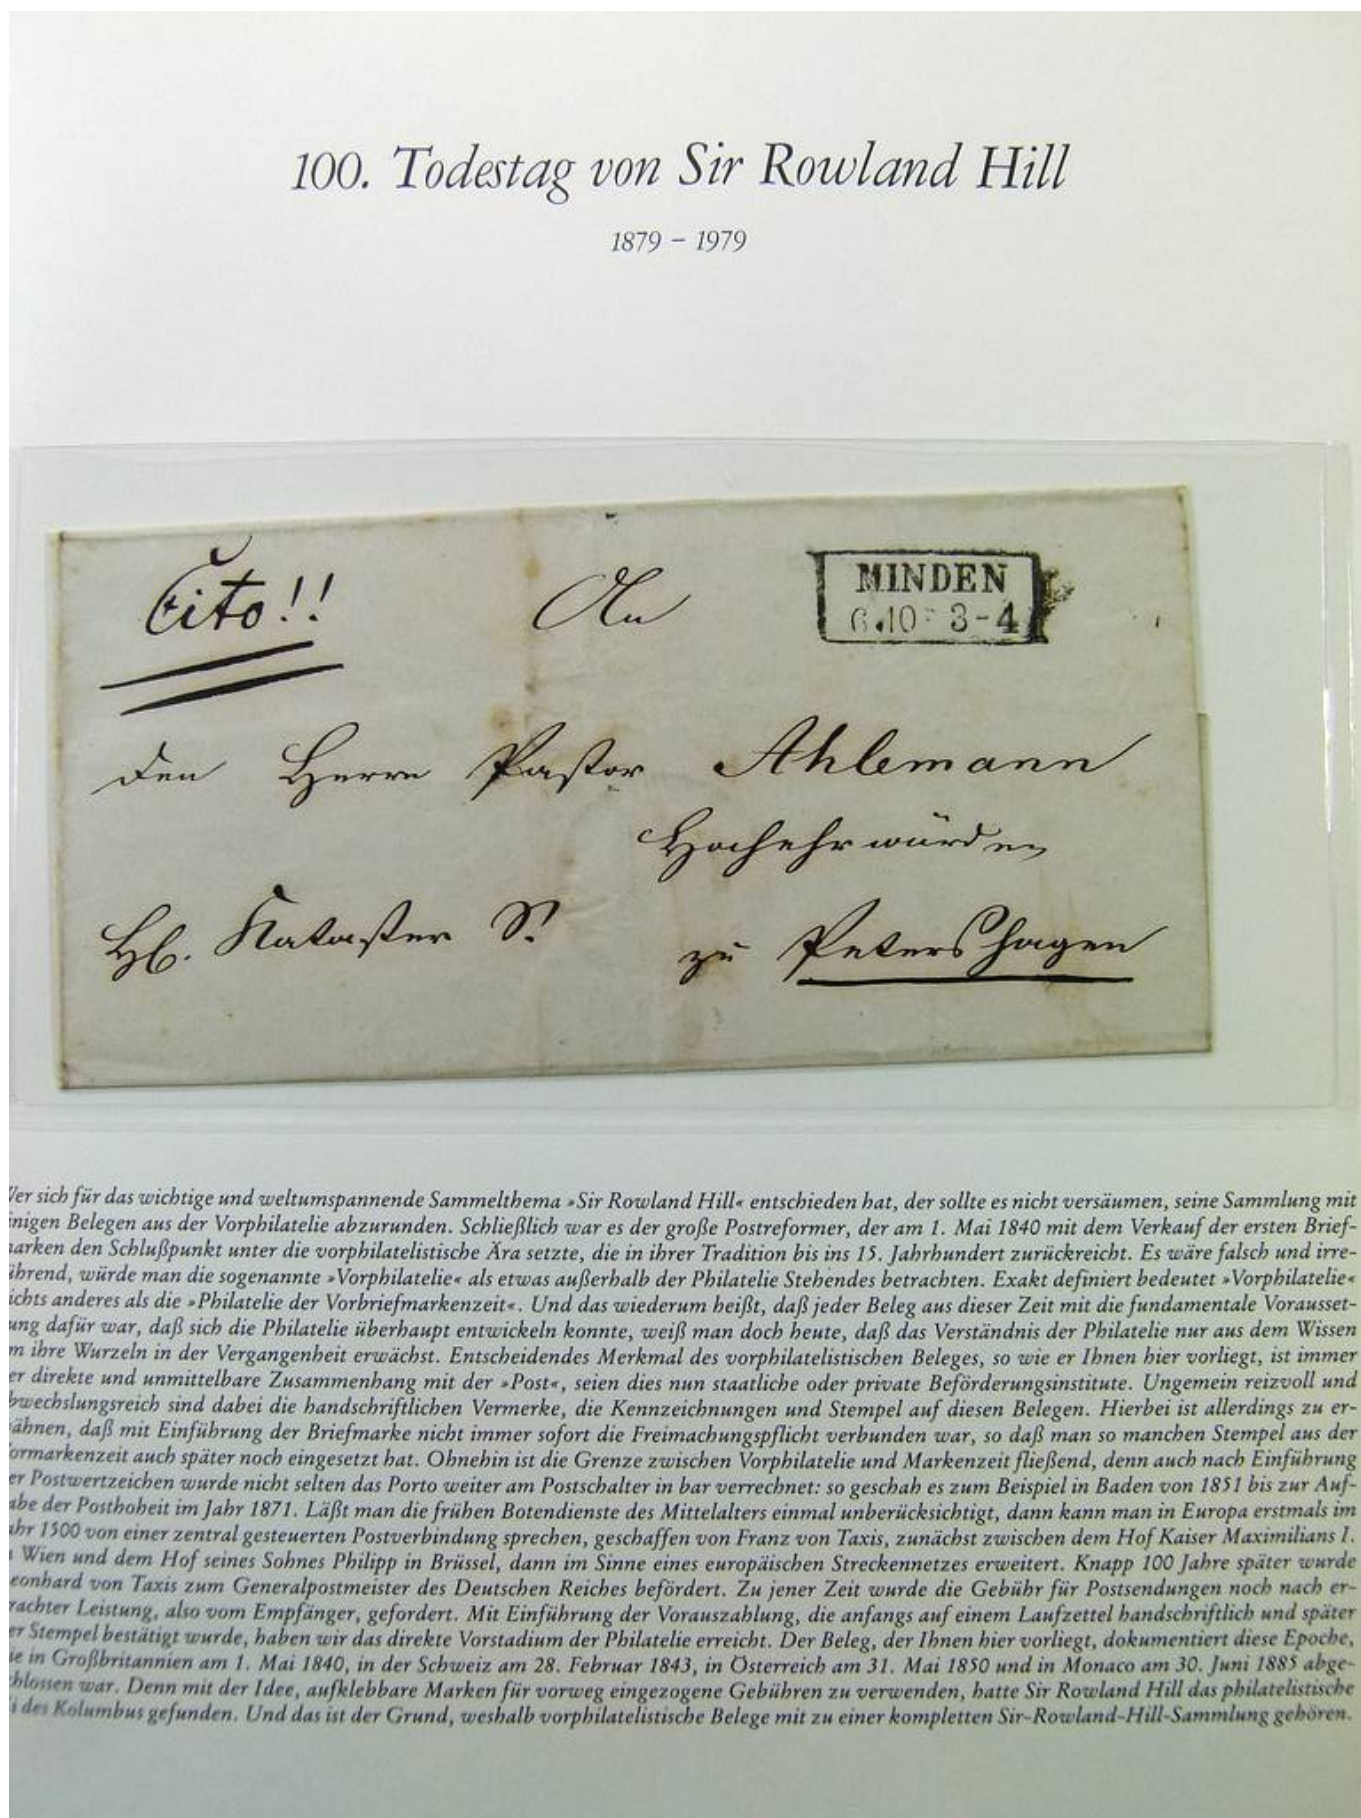 100. Todestag von Sir Rowland Hill
1879 – 1979
Cito!!
An
MINDEN
6.10 3-4
den Herrn Pastor Ahlemann
Hochehrwürden
Kataster S!
zu Petershagen
er sich für das wichtige und weltumspannende Sammelthema »Sir Rowland Hill« entschieden hat, der sollte es nicht versäumen, seine Sammlung mit
nigen Belegen aus der Vorphilatelie abzurunden. Schließlich war es der große Postreformer, der am 1. Mai 1840 mit dem Verkauf der ersten Brief-
arken den Schlußpunkt unter die vorphilatelistische Ära setzte, die in ihrer Tradition bis ins 15. Jahrhundert zurückreicht. Es wäre falsch und irre-
ührend, würde man die sogenannte »Vorphilatelie« als etwas außerhalb der Philatelie Stehendes betrachten. Exakt definiert bedeutet »Vorphilatelie«
ichts anderes als die »Philatelie der Vorbriefmarkenzeit«. Und das wiederum heißt, daß jeder Beleg aus dieser Zeit mit die fundamentale Vorausset-
ung dafür war, daß sich die Philatelie überhaupt entwickeln konnte, weiß man doch heute, daß das Verständnis der Philatelie nur aus dem Wissen
m ihre Wurzeln in der Vergangenheit erwächst. Entscheidendes Merkmal des vorphilatelistischen Beleges, so wie er Ihnen hier vorliegt, ist immer
er direkte und unmittelbare Zusammenhang mit der »Post«, seien dies nun staatliche oder private Beförderungsinstitute. Ungemein reizvoll und
bwechslungsreich sind dabei die handschriftlichen Vermerke, die Kennzeichnungen und Stempel auf diesen Belegen. Hierbei ist allerdings zu er-
ähnen, daß mit Einführung der Briefmarke nicht immer sofort die Freimachungspflicht verbunden war, so daß man so manchen Stempel aus der
ormarkenzeit auch später noch eingesetzt hat. Ohnehin ist die Grenze zwischen Vorphilatelie und Markenzeit fließend, denn auch nach Einführung
er Postwertzeichen wurde nicht selten das Porto weiter am Postschalter in bar verrechnet: so geschah es zum Beispiel in Baden von 1851 bis zur Auf-
abe der Posthoheit im Jahr 1871. Läßt man die frühen Botendienste des Mittelalters einmal unberücksichtigt, dann kann man in Europa erstmals im
ahr 1500 von einer zentral gesteuerten Postverbindung sprechen, geschaffen von Franz von Taxis, zunächst zwischen dem Hof Kaiser Maximilians I.
Wien und dem Hof seines Sohnes Philipp in Brüssel, dann im Sinne eines europäischen Streckennetzes erweitert. Knapp 100 Jahre später wurde
eonhard von Taxis zum Generalpostmeister des Deutschen Reiches befördert. Zu jener Zeit wurde die Gebühr für Postsendungen noch nach er-
rachter Leistung, also vom Empfänger, gefordert. Mit Einführung der Vorauszahlung, die anfangs auf einem Laufzettel handschriftlich und später
er Stempel bestätigt wurde, haben wir das direkte Vorstadium der Philatelie erreicht. Der Beleg, der Ihnen hier vorliegt, dokumentiert diese Epoche,
ie in Großbritannien am 1. Mai 1840, in der Schweiz am 28. Februar 1843, in Österreich am 31. Mai 1850 und in Monaco am 30. Juni 1885 abge-
hlossen war. Denn mit der Idee, aufklebbare Marken für vorweg eingezogene Gebühren zu verwenden, hatte Sir Rowland Hill das philatelistische
i des Kolumbus gefunden. Und das ist der Grund, weshalb vorphilatelistische Belege mit zu einer kompletten Sir-Rowland-Hill-Sammlung gehören.